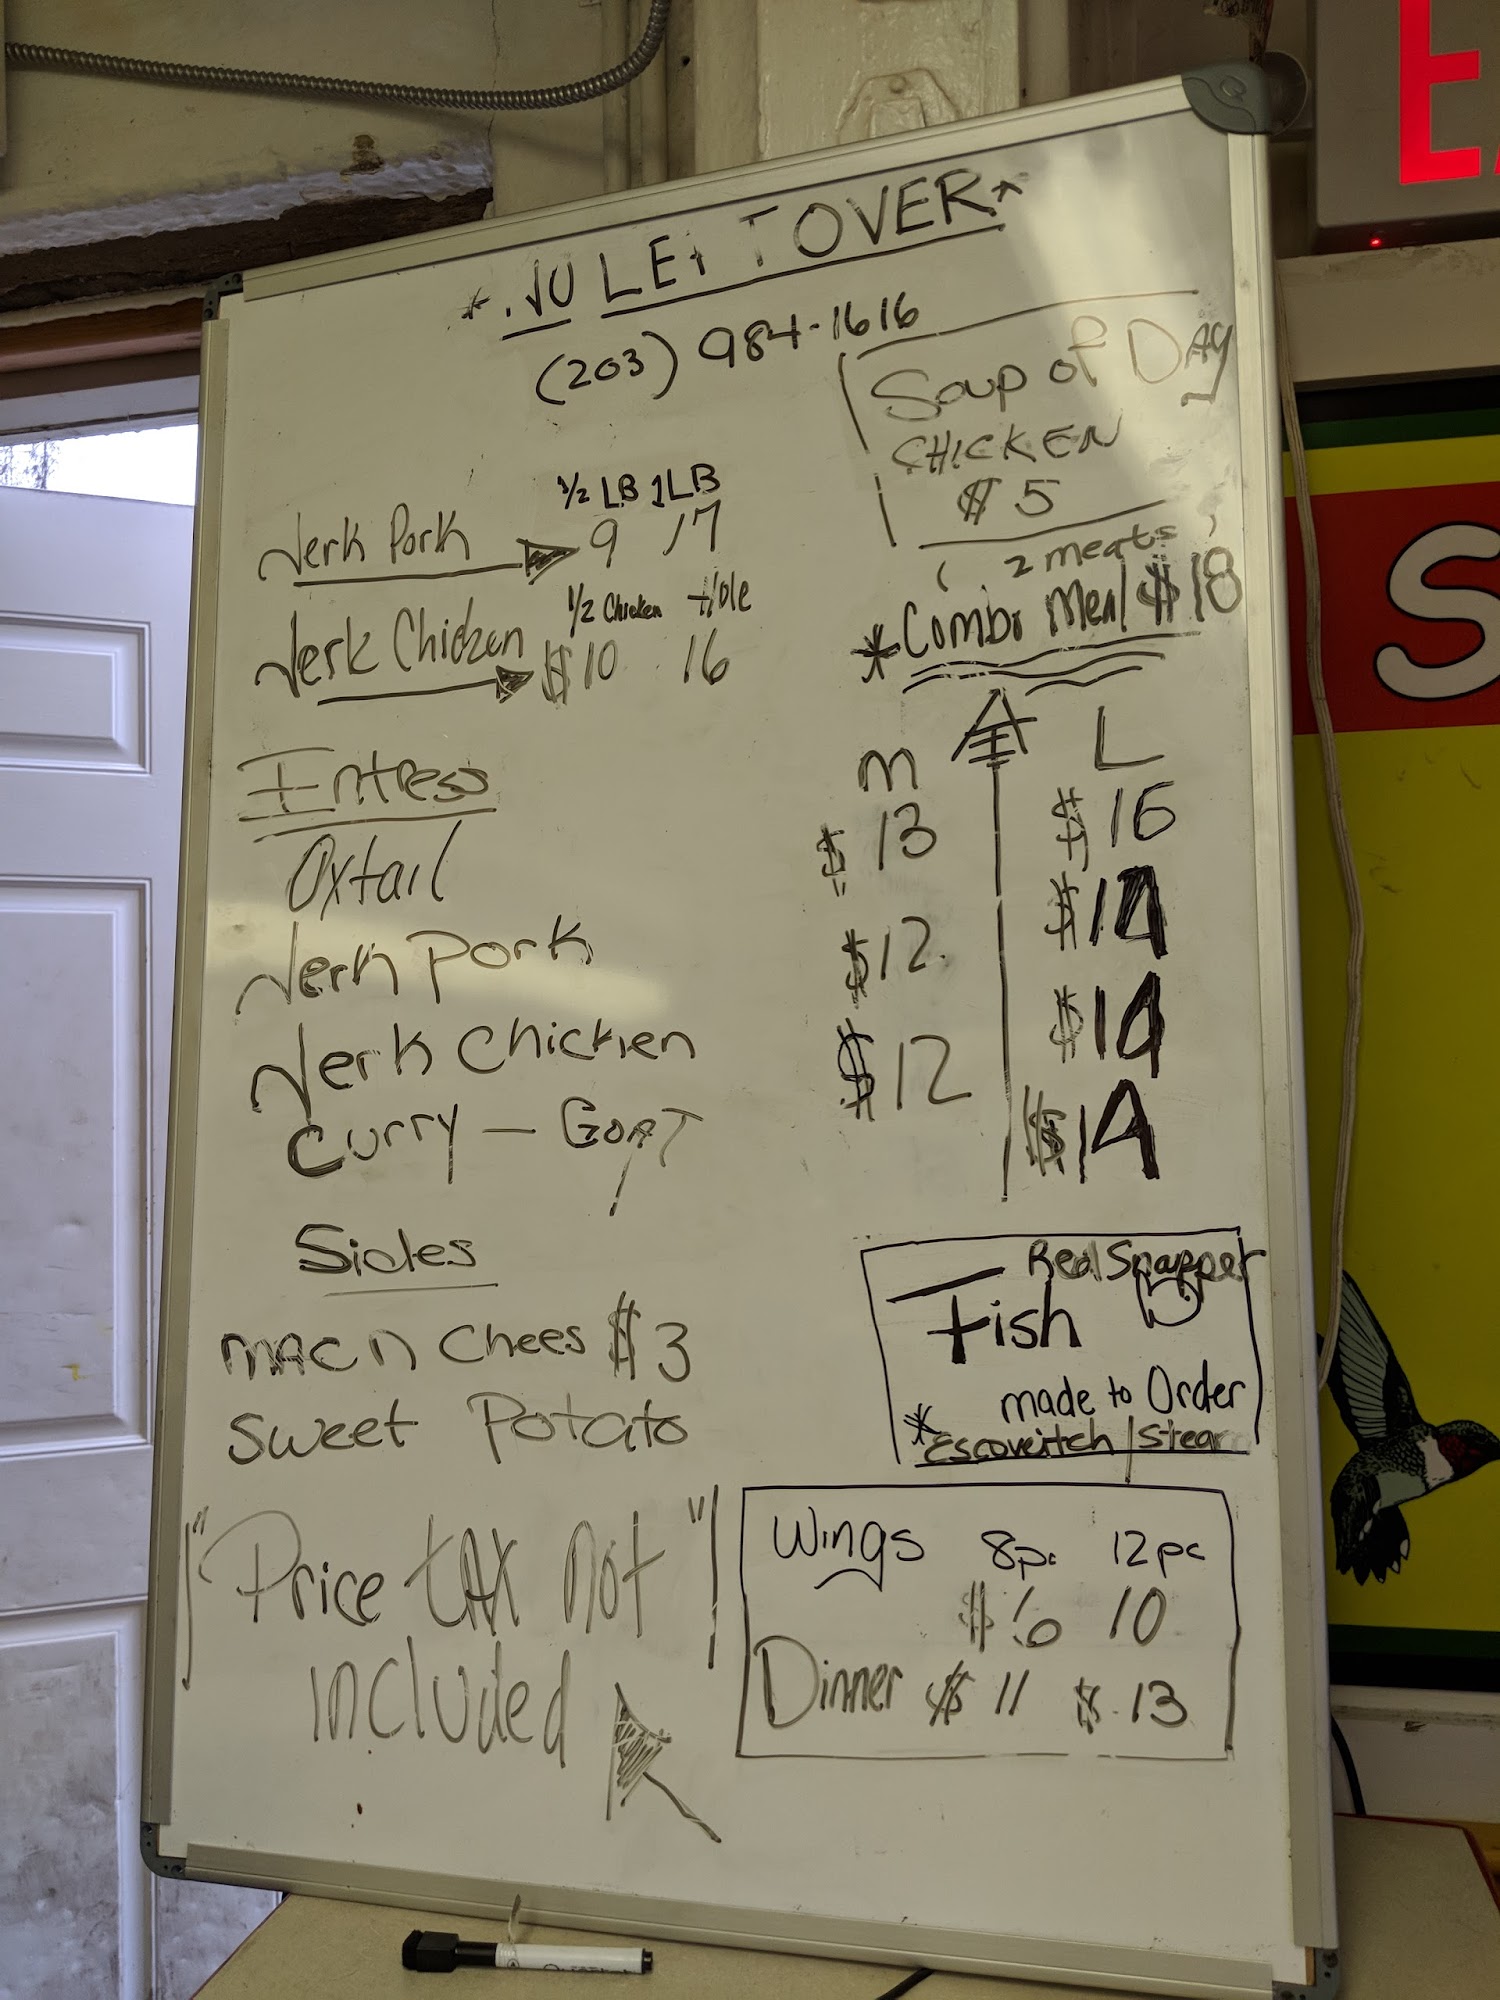 * JU LET TOVER *
(203) 984-1616
Soup of DAY
CHICKEN
$ 5
1/2 LB 1LB
Jerk Pork 9 17
1/2 Chicken Hole
Jerk Chicken $10 16
( 2 meats )
*Combo Meal $18
Entress
M L
Oxtail $ 13 $16
Jerk Pork $12 $14
Jerk Chicken $12 $14
Curry - GOAT $14
Sides
MAC n Chees $3
Sweet Potato
Red Snapper
Fish
made to Order
* Escoveitch | Stear
"Price tAX not"
included
Wings 8pc 12pc
$ 6 10
Dinner $ 11 $ 13
E
S